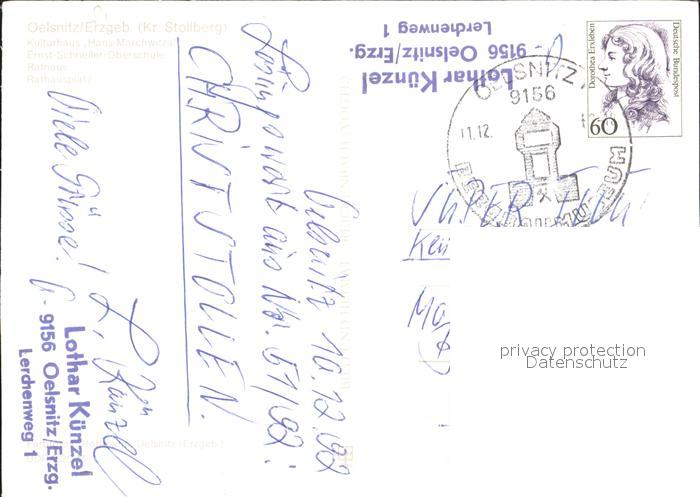 Oelsnitz/Erzgeb. (Kr. Stollberg)
Kulturhaus „Hans Marchwitza"
Ernst-Schneller-Oberschule
Rathaus
Rathausplatz
Lothar Künzel
9156 Oelsnitz/Erzg.
Lerchenweg 1
OELSNITZ
9156
11.12.
Deutsche Bundespost
Dorothea Erxleben
60
SUPER TITU
Oelsnitz 10.12.92
Lösungswort aus Nr. 51/92:
CHRISTSTOLLEN.
Viele Grüsse!
L. Künzel
Lothar Künzel
9156 Oelsnitz/Erzg.
Lerchenweg 1
privacy protection
Datenschutz